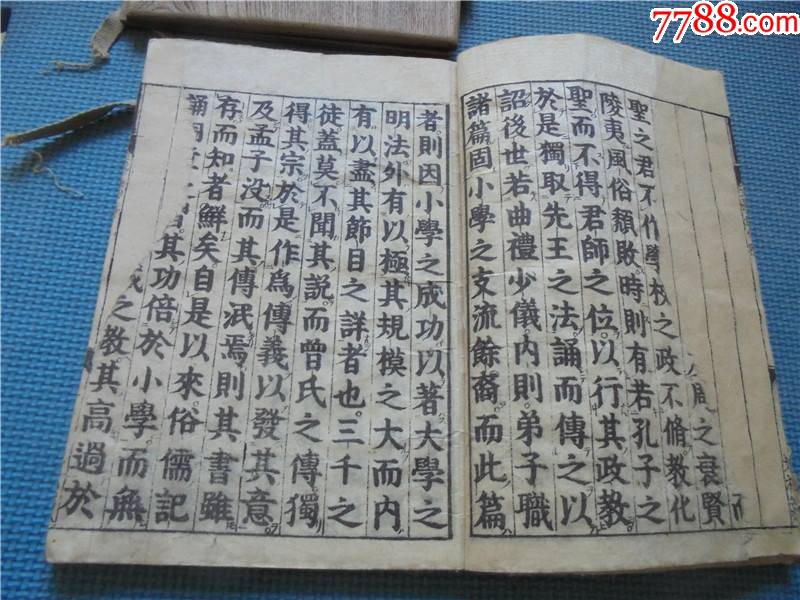 周之衰賢
聖之君不作學校之政不脩教化
陵夷風俗頹敗時則有若孔子之
聖而不得君師之位以行其政教
於是獨取先王之法誦而傳之以
詔後世若曲禮少儀內則弟子職
諸篇固小學之支流餘裔而此篇
者則因小學之成功以著大學之
明法外有以極其規模之大而內
有以盡其節目之詳者也三千之
徒蓋莫不聞其說而曾氏之傳獨
得其宗於是作爲傳義以發其意
及孟子沒而其傳泯焉則其書雖
存而知者鮮矣自是以來俗儒記
誦之習其功倍於小學而無
之教其高過於
7788.com